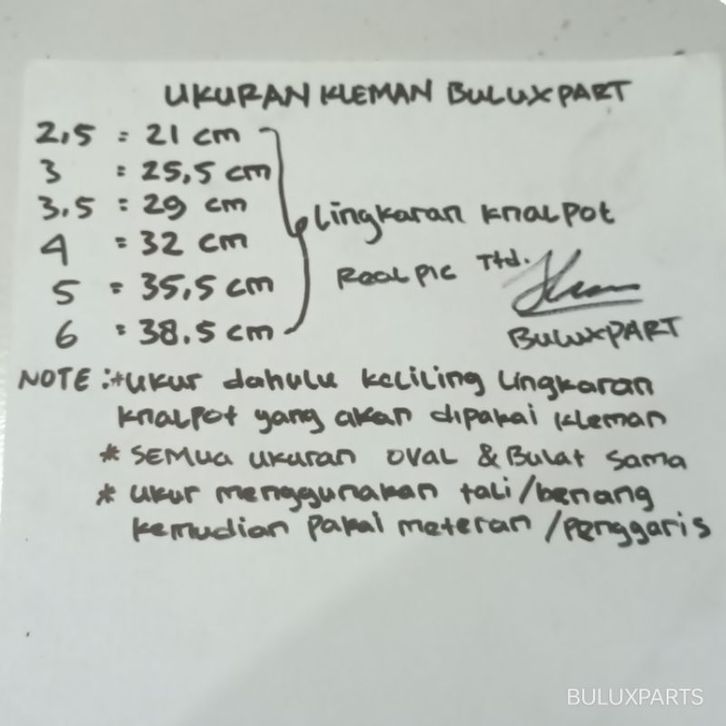 UKURAN KLEMAN BULUXPART
2,5 = 21 cm
3 = 25,5 cm
3,5 = 29 cm
4 = 32 cm
5 = 35,5 cm
6 = 38.5 cm
Lingkaran knalpot
Real pic Ttd.
BULUXPART
NOTE : * ukur dahulu keliling lingkaran
knalpot yang akan dipakai kleman
* SEMUA ukuran OVAL & Bulat sama
* ukur menggunakan tali/benang
kemudian pakai meteran /penggaris
BULUXPARTS